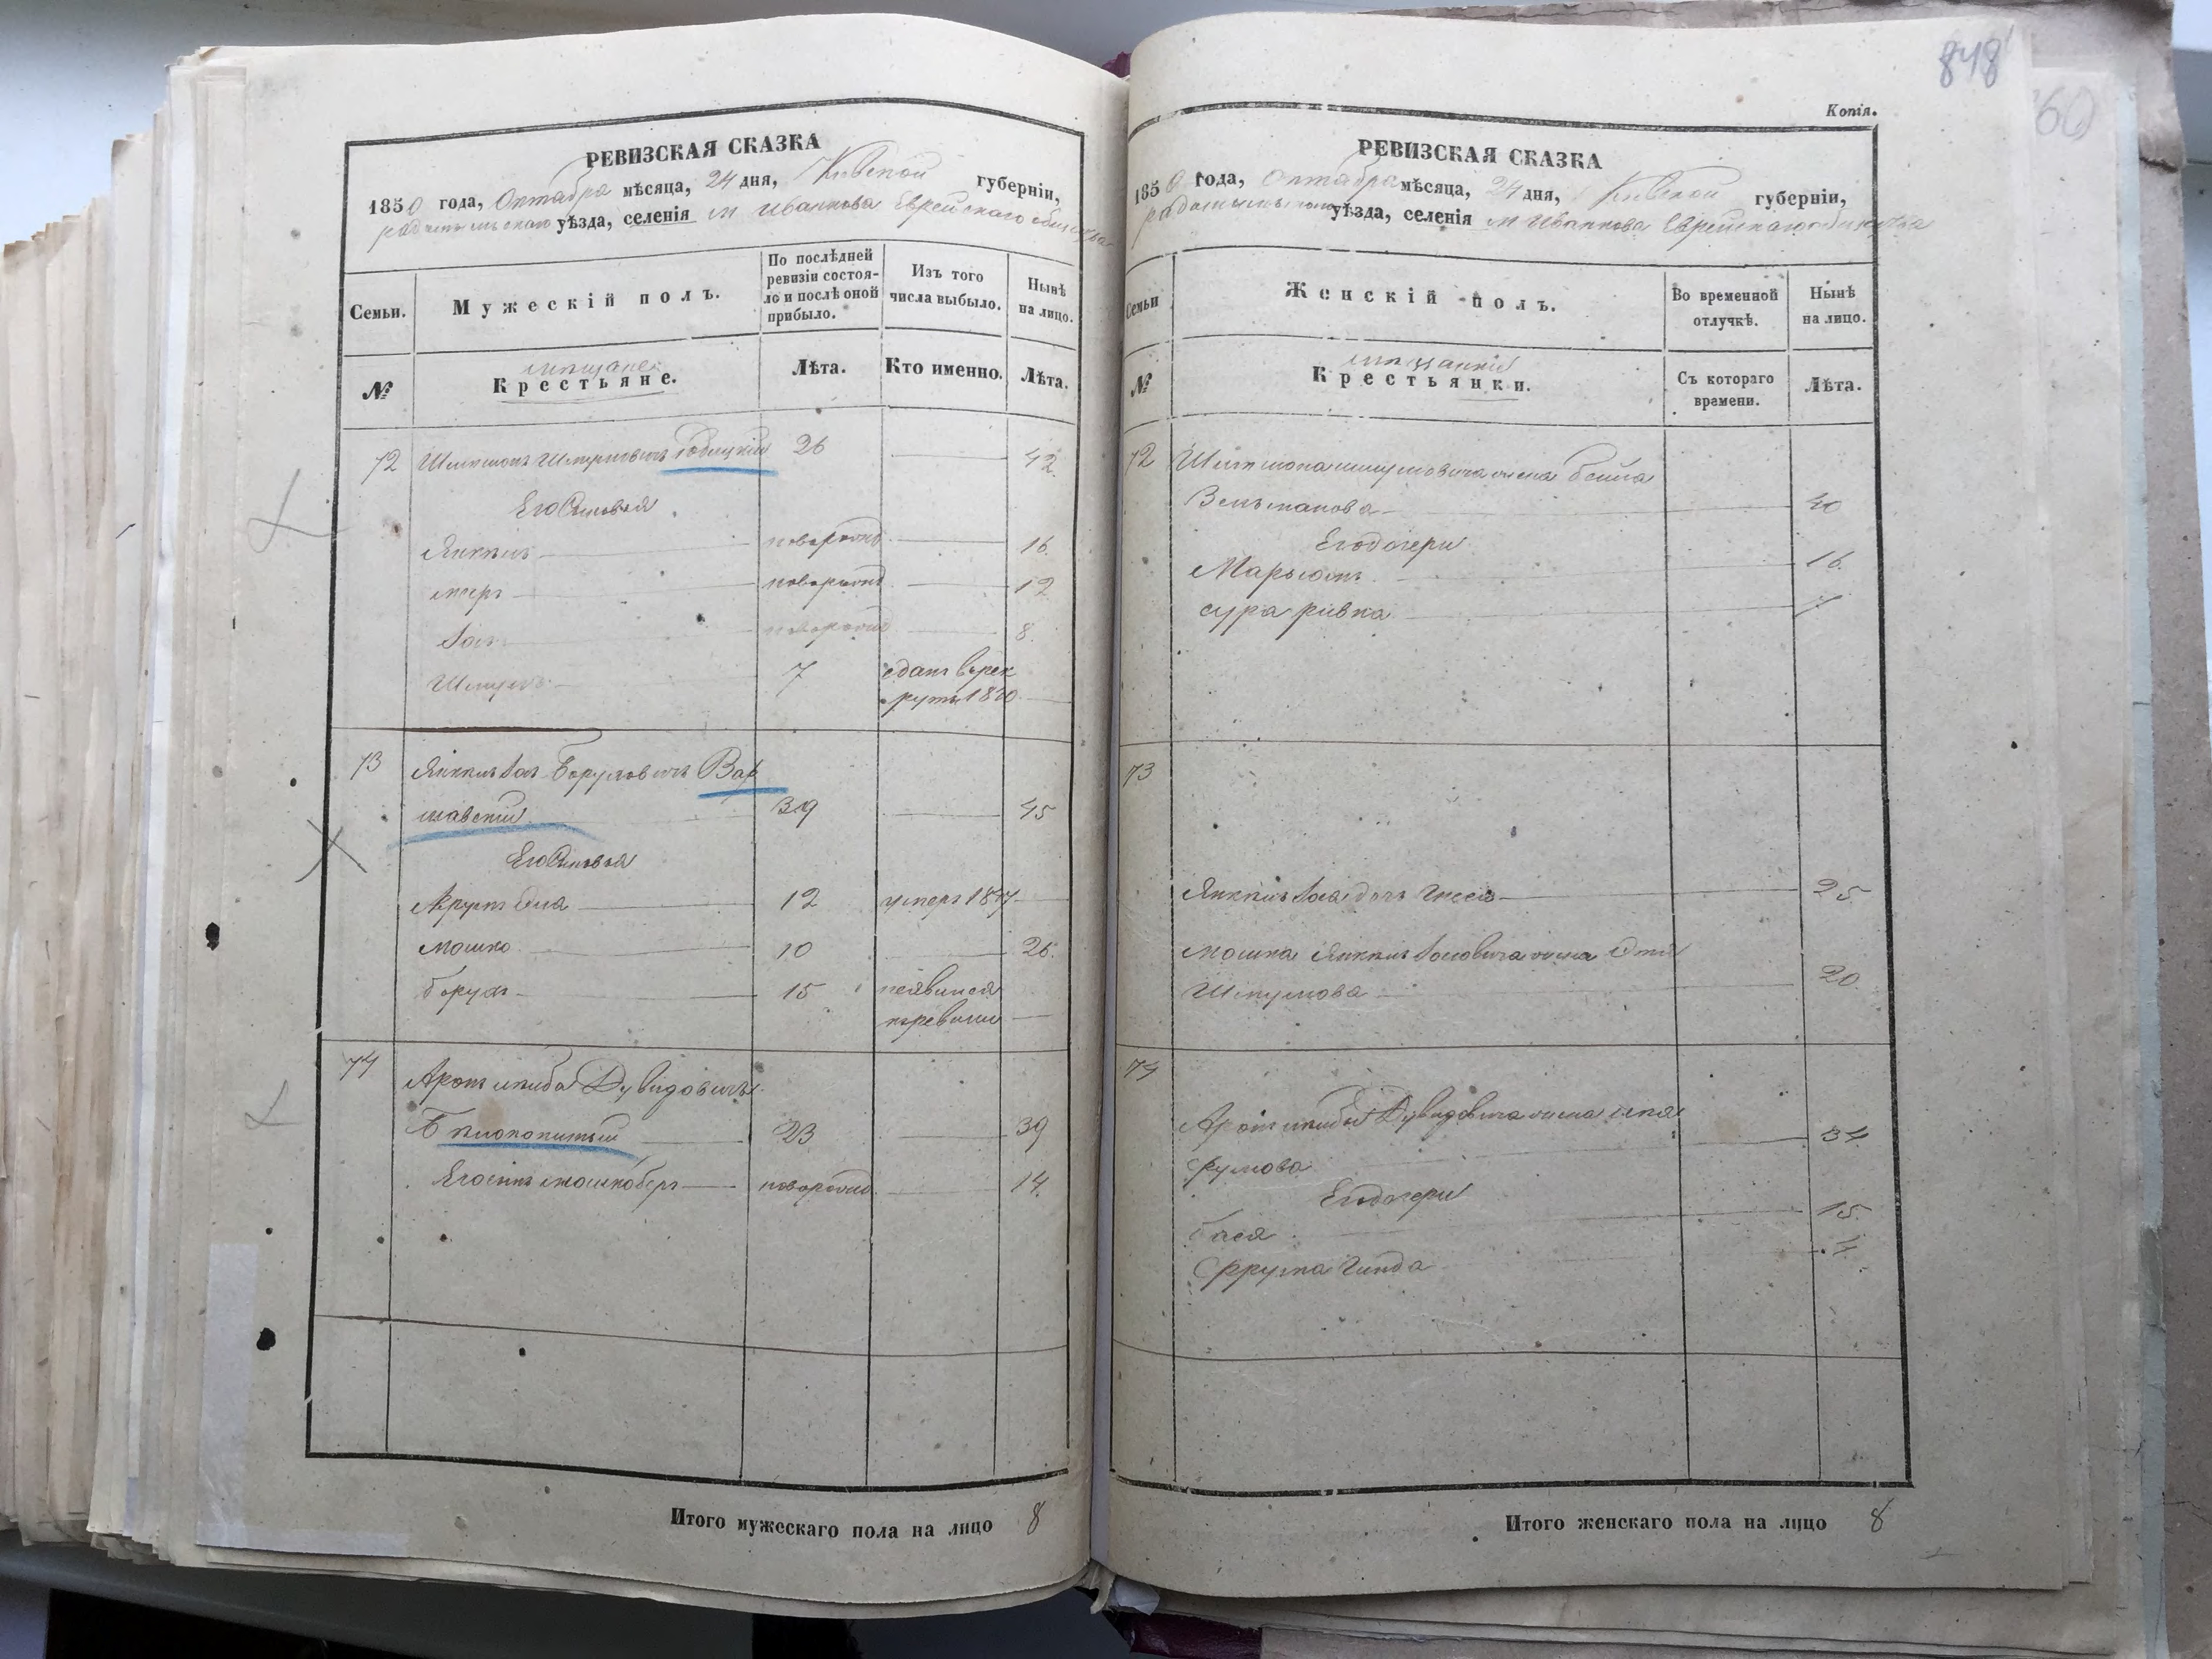 848
60
РЕВИЗСКАЯ СКАЗКА
1850 года, Октабра мѣсяца, 24 дня, Кивской губерніи,
уѣзда, селенія м Иванкова Еврейскаго общества
Семьи.
Мужескій полъ.
По послѣдней ревизіи состояло и послѣ оной прибыло.
Изъ того числа выбыло.
Нынѣ на лицо.
№
мѣщане
Крестьяне.
Лѣта.
Кто именно.
Лѣта.
72 Шмулювичъ 26 42
Его Синовья
Янкель новорожд 16
меръ новорожд 12
новорожд 8
Шмуль 7 сданъ врек
руты 1840
73 Янкель Борухович Вар
шавский 39 45
Его Синовья
12 умеръ 1847
мошко 10 26
борухъ 15 неявился
кревизии
74 Аронъ акиба Дувидовичъ
Белокопитый 23 39
Его синъ мошкоберъ новорожд 14
Итого мужескаго пола на лицо 8
Копія.
РЕВИЗСКАЯ СКАЗКА
1850 года, Октабра мѣсяца, 24 дня, Кивской губерніи,
уѣзда, селенія м Иванкова Еврейскаго общества
Семьи
Женскій полъ.
Во временной отлучкѣ.
Нынѣ на лицо.
№
мѣщанки
Крестьянки.
Съ котораго времени.
Лѣта.
72 жена бейла
40
Его дочери
Марьясъ 16
сура ривка
73
Янкель дочь 25
мошка жена
Шмулова 20
74
Аронъ акибы Дувидовича жена 34
Его дочери
бася 15
Фрума Гинда 4
Итого женскаго пола на лицо 8